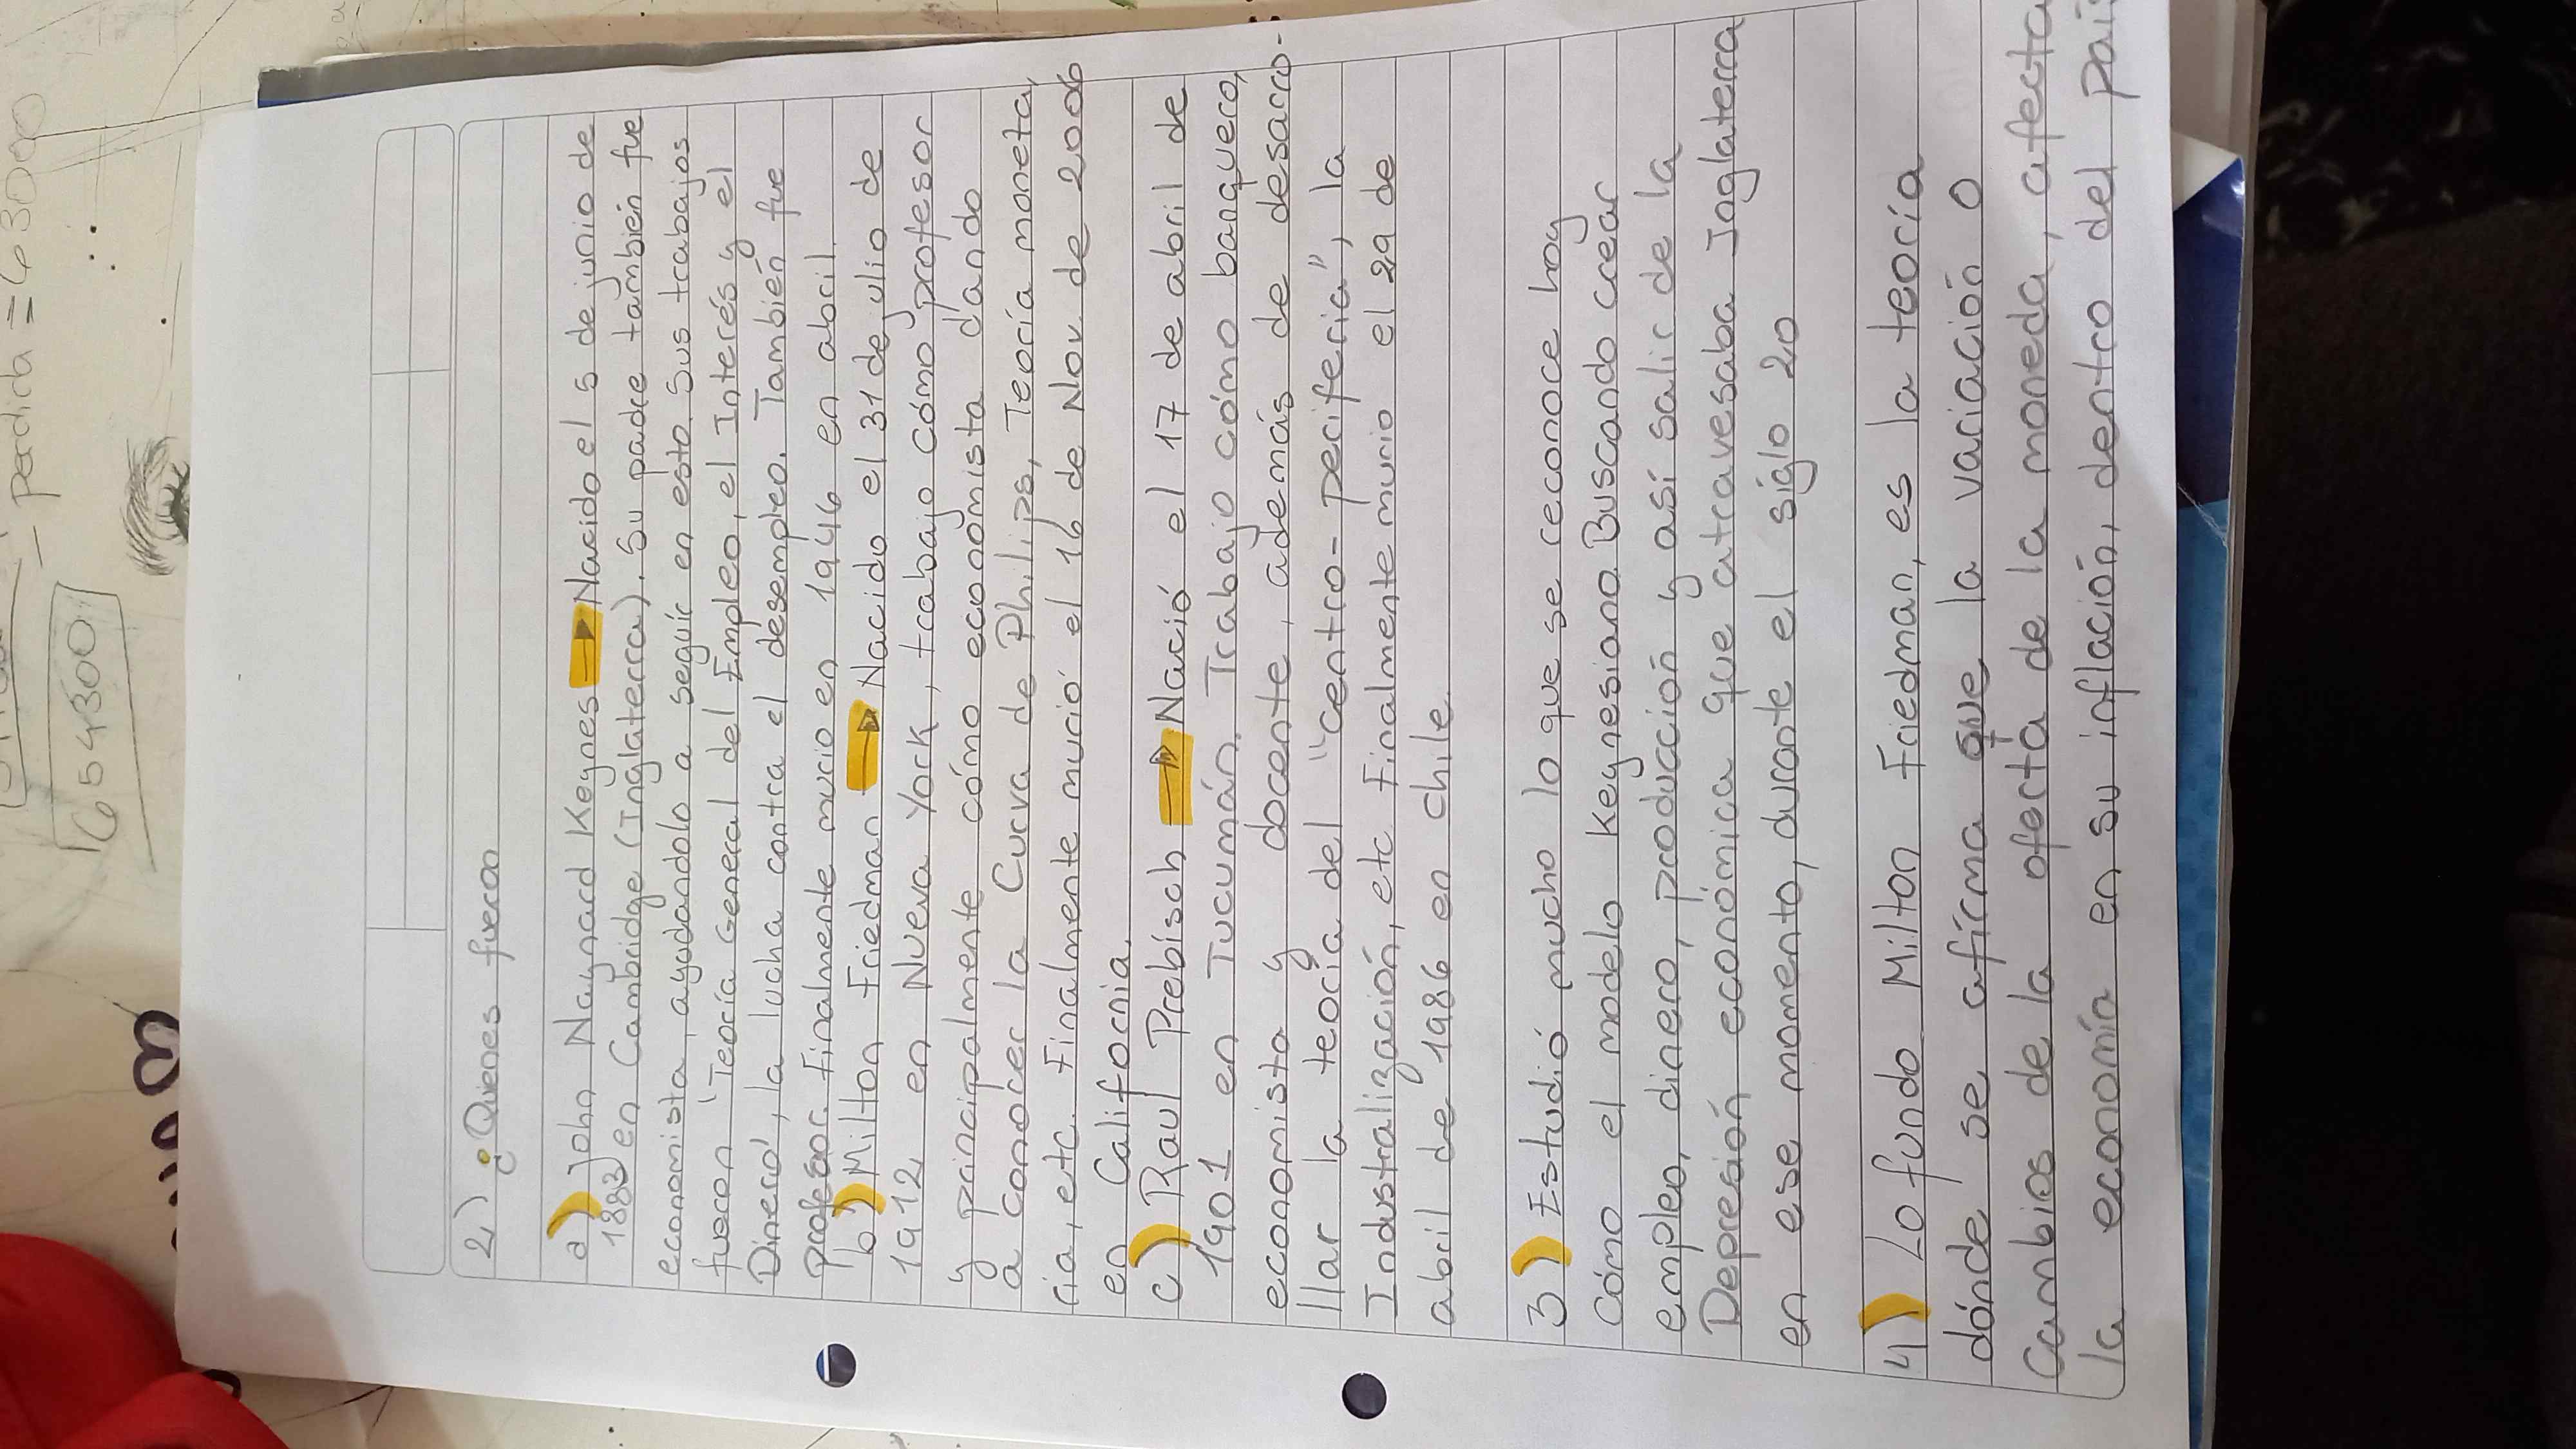 - perdida = 63000
654300
2) ¿Quienes fueron
a) John Naynard Keynes → Nacido el 5 de junio de
1883 en Cambridge (Inglaterra). Su padre también fue
economista, ayudandolo a seguir en esto. Sus trabajos
fueron "Teoría General del Empleo, el Interés y el
Dinero", la lucha contra el desempleo. También fue
profesor. Finalmente murio en 1946 en abril.
b) Milton Friedman → Nacido el 31 de julio de
1912 en Nueva York, trabajo cómo profesor
y principalmente cómo economista dando
a conocer la Curva de Philips, Teoría moneta,
ria, etc. Finalmente murió el 16 de Nov. de 2006
en California.
c) Raul Prebisch → Nació el 17 de abril de
1901 en Tucumán. Trabajo cómo banquero,
economista y docente, además de desarro-
llar la teoría del "centro-periferia", la
Industralización, etc Finalmente murio el 29 de
abril de 1986 en chile.
3) Estudió mucho lo que se reconoce hoy
cómo el modelo Keynesiano. Buscando crear
empleo, dinero, producción y así salir de la
Depresión económica que atravesaba Inglaterra
en ese momento, durante el siglo 20
4) Lo fundo Milton Friedman, es la teoría
dónde se afirma que la variación o
Cambios de la oferta de la moneda, afecta
la economía en su inflación, dentro del país